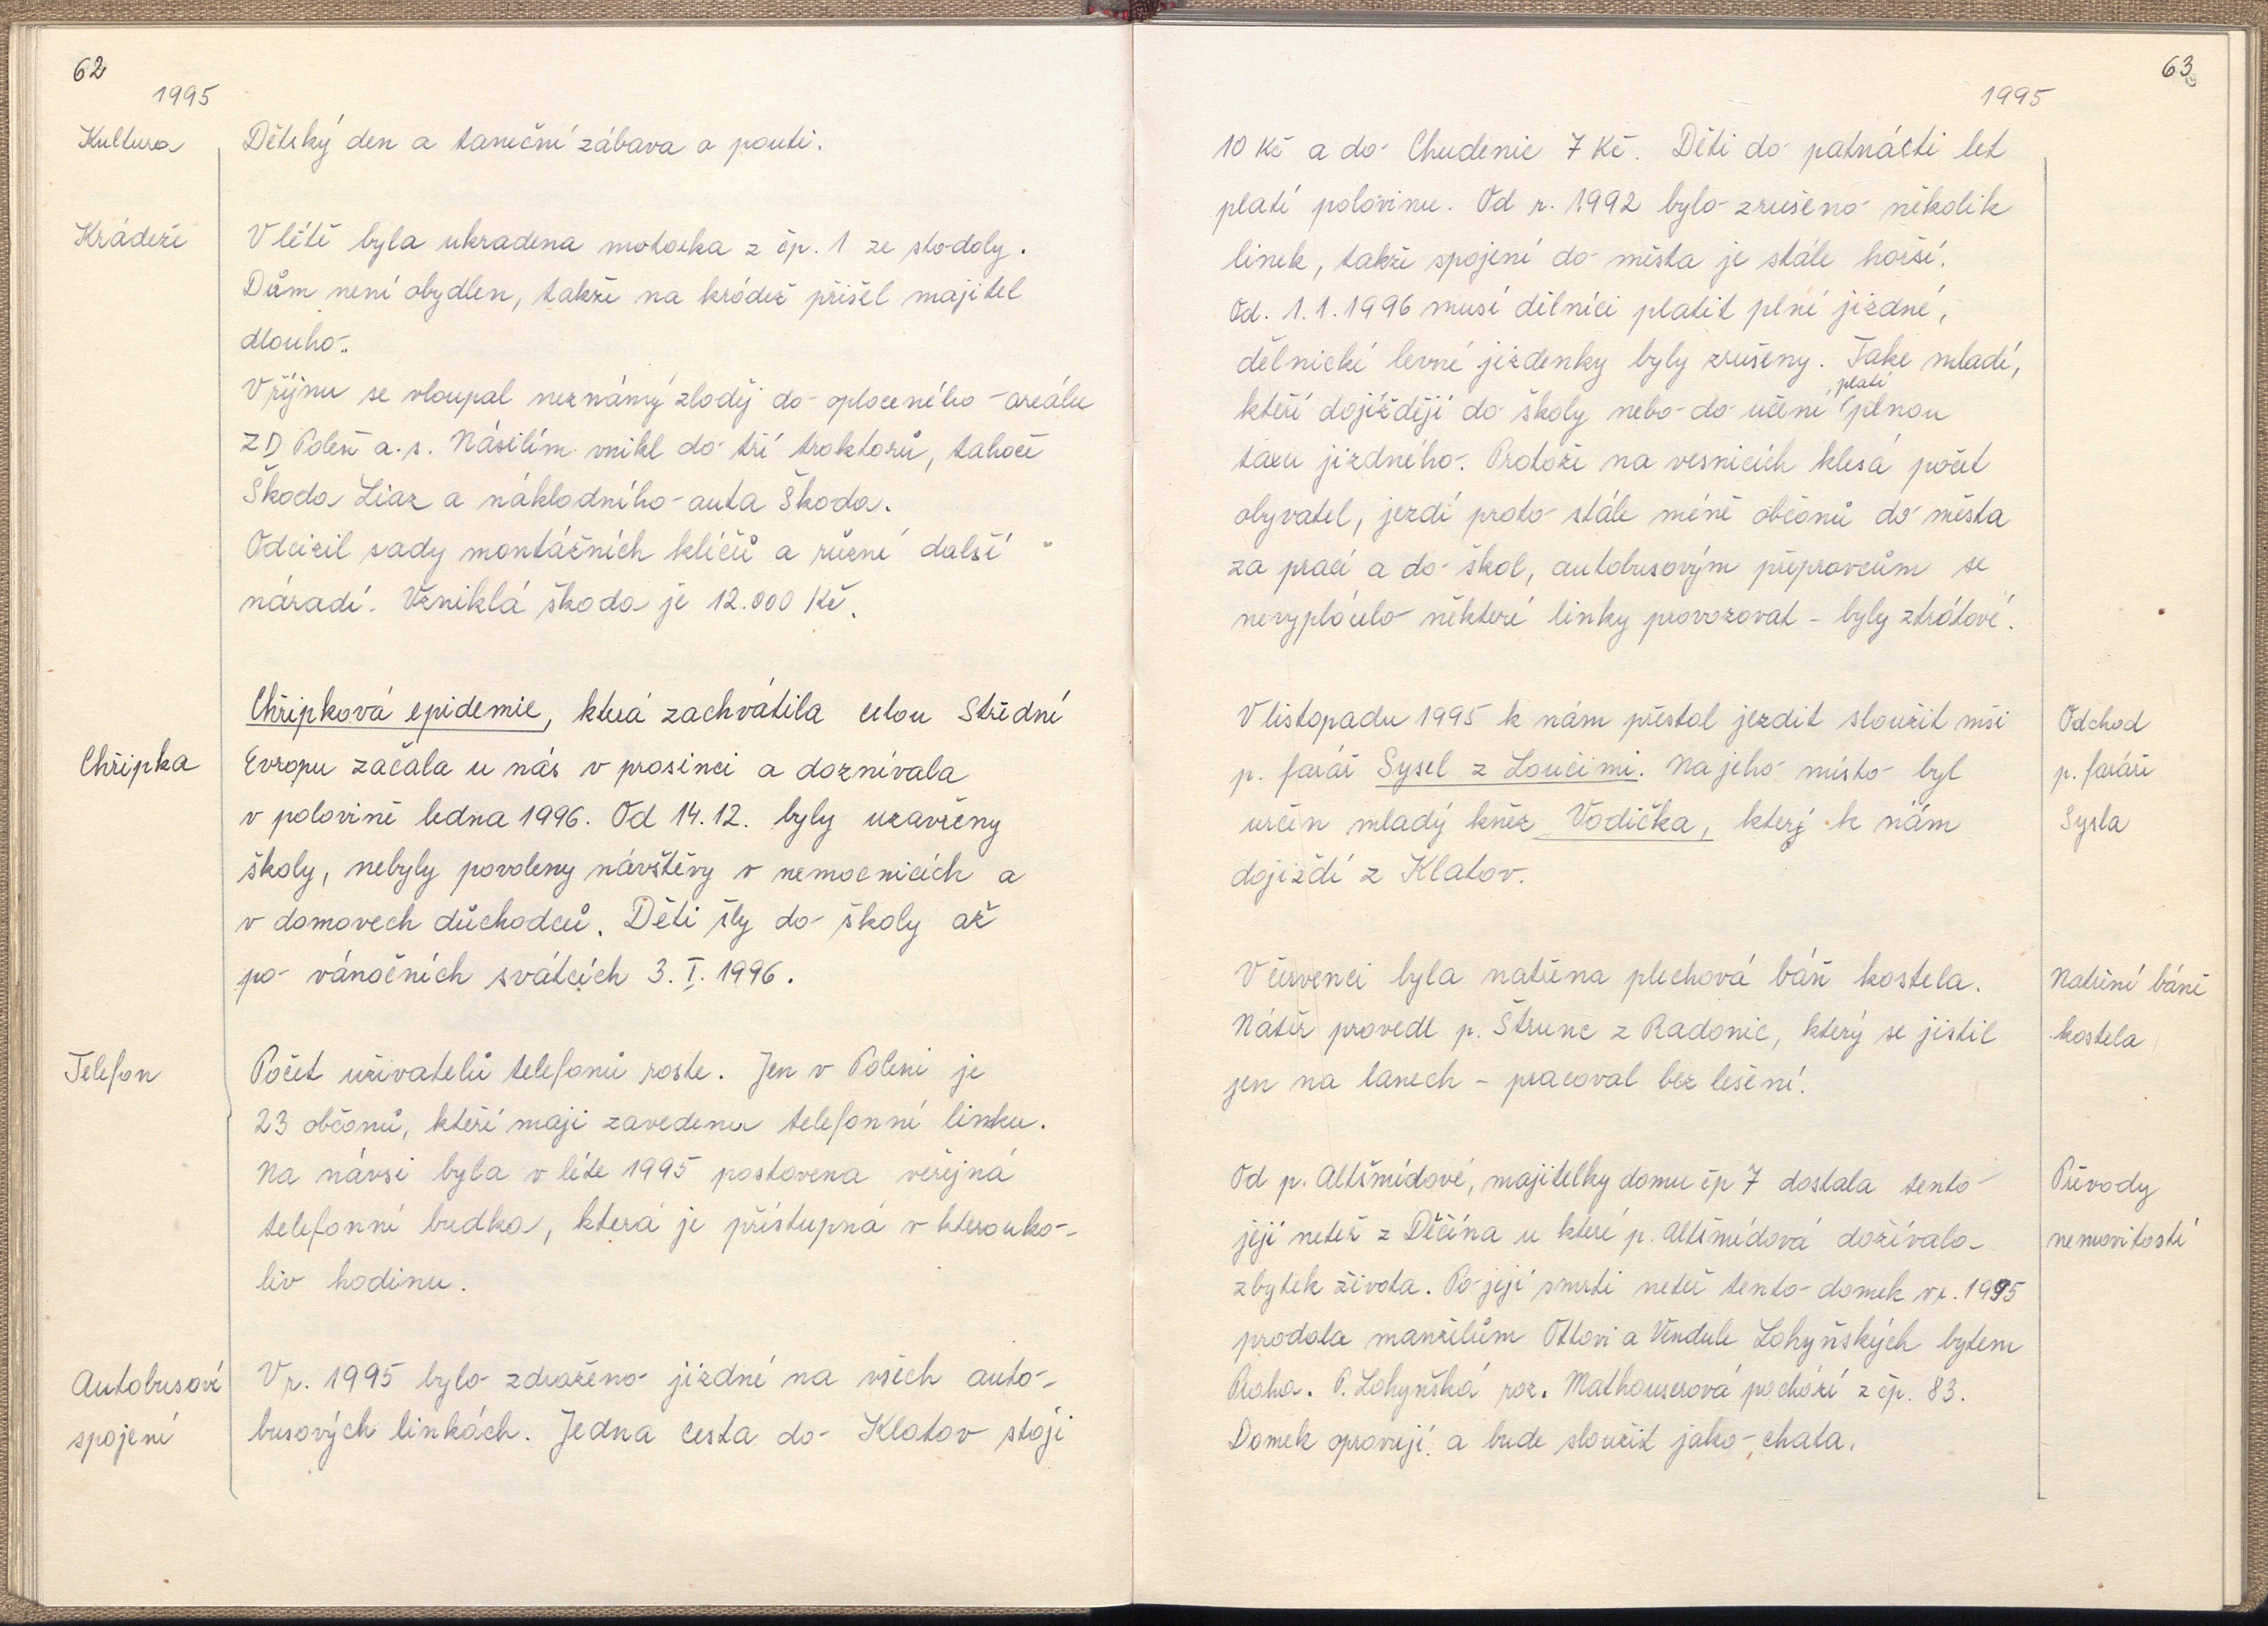 62
1995
Kultura
Dětský den a taneční zábava o pouti.
Krádeže
V létě byla ukradena motorka z čp. 1 ze stodoly.
Dům není obydlen, takže na krádež přišel majitel
dlouho.
V říjnu se vloupal neznámý zloděj do oploceného areálu
ZD Poleň a.s. Násilím vnikl do tří traktorů, tahače
Škoda Liaz a nákladního auta Škoda.
Odcizil sady montážních klíčů a různé další
nářadí. Vzniklá škoda je 12.000 Kč.
Chřipka
Chřipková epidemie, která zachvátila celou Střední
Evropu začala u nás v prosinci a doznívala
v polovině ledna 1996. Od 14.12. byly uzavřeny
školy, nebyly povoleny návštěvy v nemocnicích a
v domovech důchodců. Děti šly do školy až
po vánočních svátcích 3. I. 1996.
Telefon
Počet uživatelů telefonů roste. Jen v Poleni je
23 občanů, kteří mají zavedenu telefonní linku.
Na návsi byla v létě 1995 postavena veřejná
telefonní budka, která je přístupná v kterouko-
liv hodinu.
Autobusové
spojení
V r. 1995 bylo zdraženo jízdné na všech auto-
busových linkách. Jedna cesta do Klatov stojí
63
1995
10 Kč a do Chudenic 7 Kč. Děti do patnácti let
platí polovinu. Od r. 1992 bylo zrušeno několik
linek, takže spojení do města je stále horší.
Od. 1.1.1996 musí dělníci platit plné jízdné,
dělnické levné jízdenky byly zrušeny. Také mladí,
kteří dojíždějí do školy nebo do učení platí plnou
taxu jízdného. Protože na vesnicích klesá počet
obyvatel, jezdí proto stále méně občanů do města
za prací a do škol, autobusovým přepravcům se
nevyplácelo některé linky provozovat - byly ztrátové.
V listopadu 1995 k nám přestal jezdit sloužit mši
p. farář Sysel z Loučimi. Na jeho místo byl
určen mladý kněz Vodička, který k nám
dojíždí z Klatov.
Odchod
p. faráře
Sysla
V červenci byla natřena plechová báň kostela.
Nátěr provedl p. Štrunc z Radonic, který se jistil
jen na lanech - pracoval bez lešení.
Natření báně
kostela
Od p. Altšmídové, majitelky domu čp 7 dostala tento
její neteř z Děčína u které p. Altšmídová dožívala
zbytek života. Po její smrti neteř tento domek v r. 1995
prodala manželům Ottovi a Vendule Lohyňských bytem
Praha. P. Lohyňská roz. Mathauserová pochází z čp. 83.
Domek opravují a bude sloužit jako chata.
Převody
nemovitostí